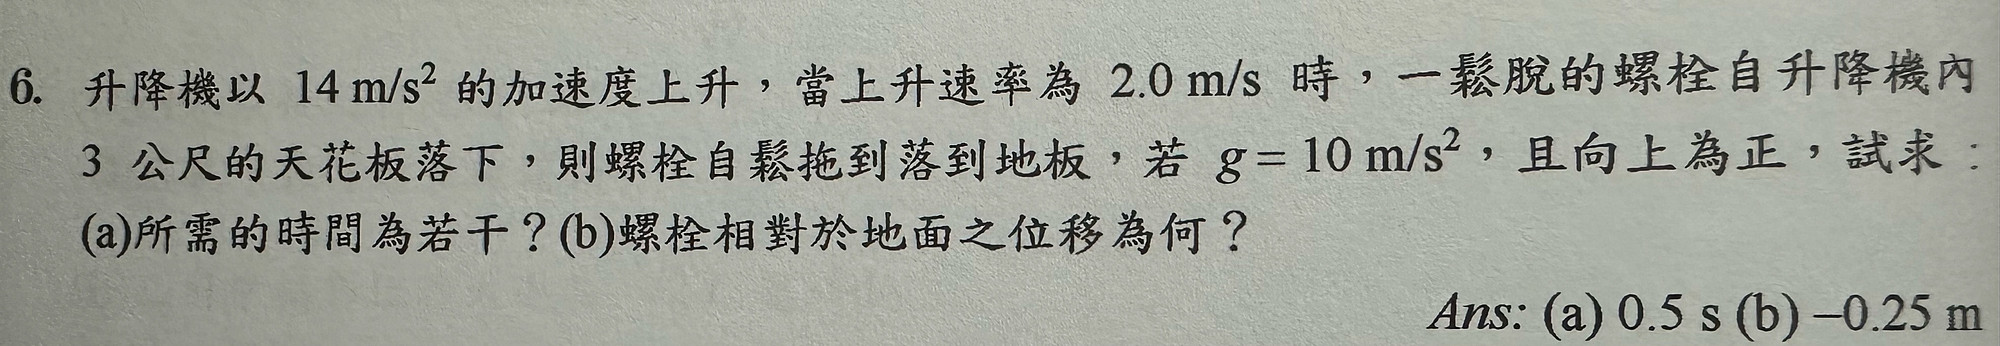 6. 升降機以 14 m/s² 的加速度上升，當上升速率為 2.0 m/s 時，一鬆脫的螺栓自升降機內
3 公尺的天花板落下，則螺栓自鬆拖到落到地板，若 g = 10 m/s²，且向上為正，試求：
(a)所需的時間為若干？(b)螺栓相對於地面之位移為何？
Ans: (a) 0.5 s (b) –0.25 m